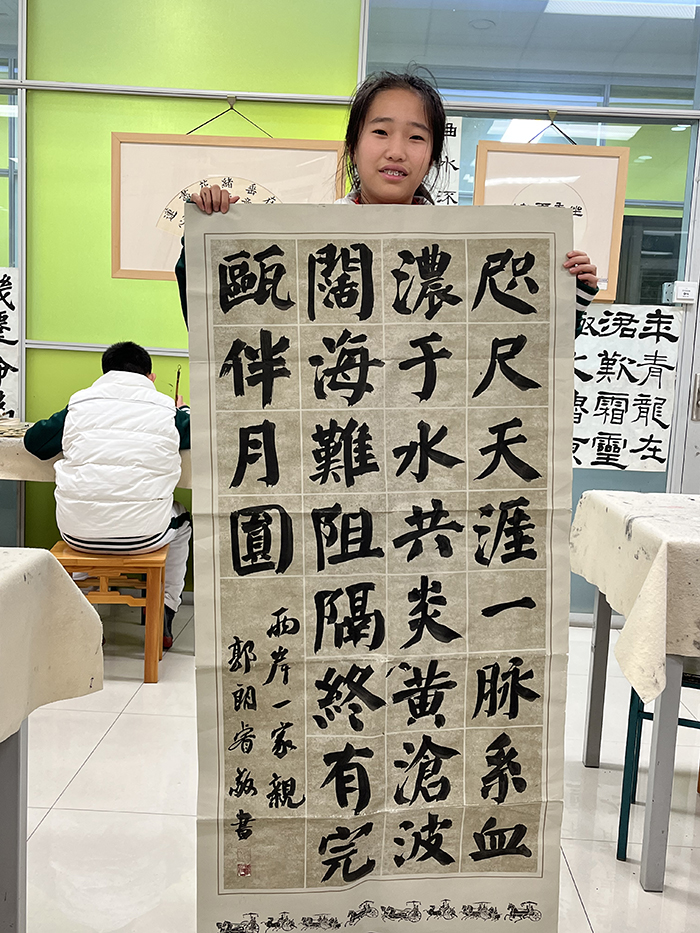 咫尺天涯一脉系血
濃于水共炎黄滄波
闊海難阻隔終有完
甌伴月圓
兩岸一家親
郭明睿敬書
青龍在
涒歎霜靈